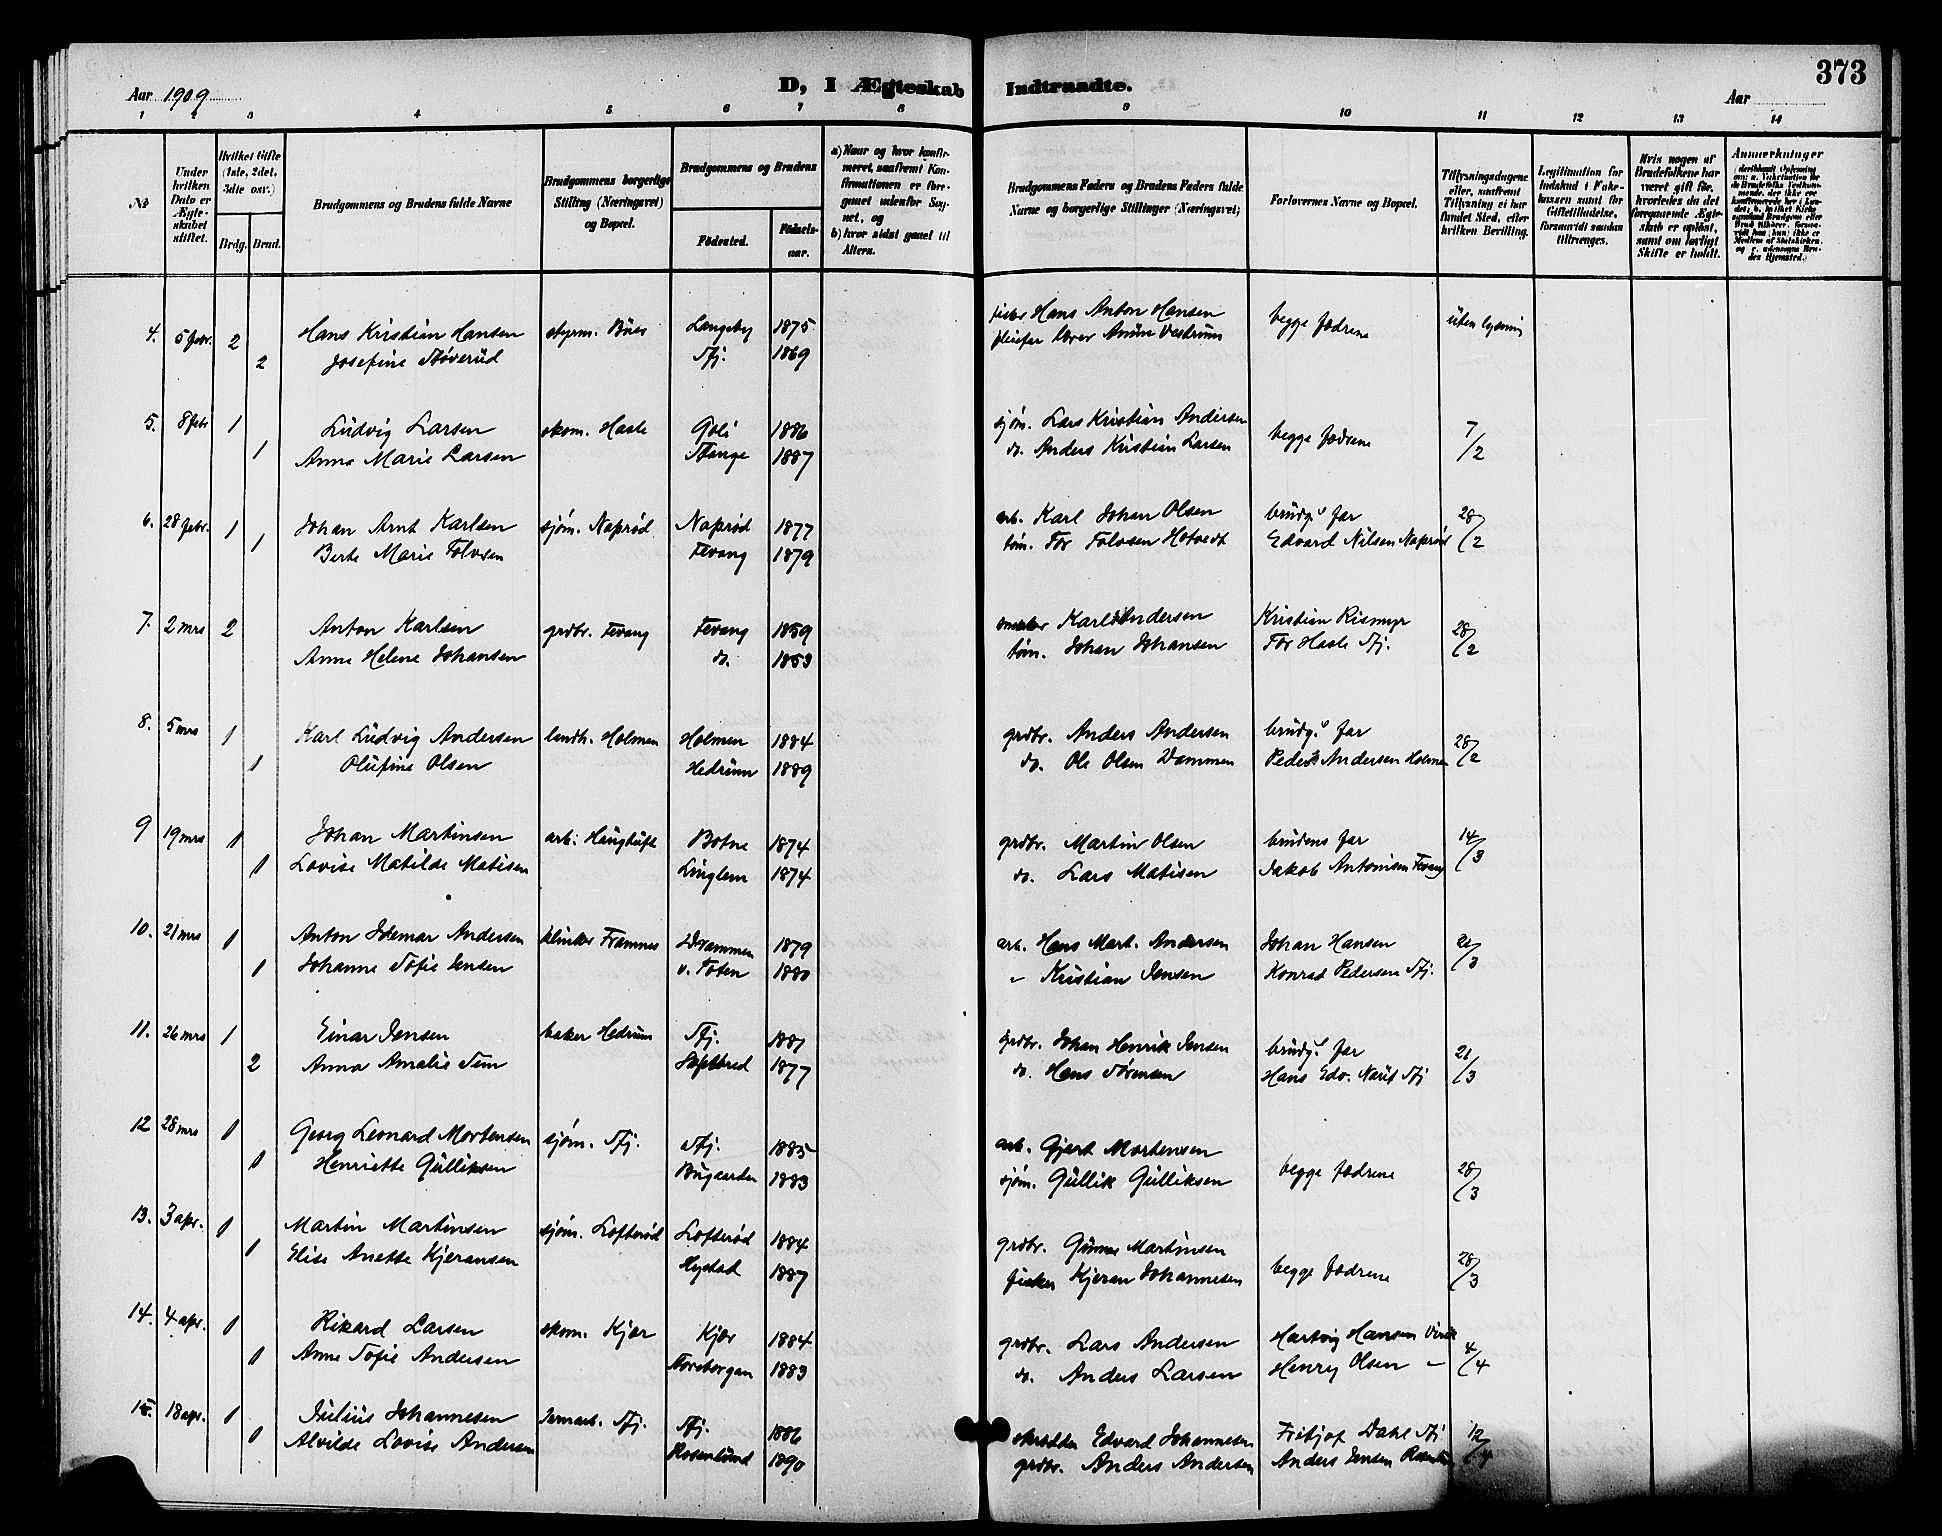 373
D, I Ægteskab Indtraadte.
Aar 1909
Aar
1 2 3 4 5 6 7 8 9 10 11 12 13 14
№
Under hvilken Dato er Ægteskabet stiftet.
Hvilket Gifte (1ste, 2det, 3die osv.)
Brdg. Brud.
Brudgommens og Brudens fulde Navne
Brudgommens borgerlige Stilling (Næringsvei) og Bopæl.
Brudgommens og Brudens
Fødested.
Fødselsaar.
a) Naar og hvor konfirmeret, saafremt Konfirmationen er foregaaet udenfor Sognet, og
b) hvor sidst gaaet til Alters.
Brudgommens Faders og Brudens Faders fulde Navne og borgerlige Stillinger (Næringsvei)
Forlovernes Navne og Bopæl.
Tillysningsdagene eller, saafremt Tillysning ei har fundet Sted, efter hvilken Bevilling.
Legitimation for Indskud i Enkekassen samt for Giftetilladelse, forsaavidt saadan tiltrænges.
Hvis nogen af Brudefolkene har været gift før, hvorledes da det foregaaende Ægteskab er opløst, samt om lovligt Skifte er holdt.
Anmerkninger
4. 5 febr. 2 Hans Kristian Hansen styrm. Langeby 1875 Hans Anton Hansen begge fædrene uten lysning
2 Josefine Støverud Sfj. 1869 Vestrum
5. 8 febr 1 Ludvig Larsen skom. Hasle Goli 1886 sjøm. Lars Kristian Andersen begge fædrene 7/2
1 Anna Marie Larsen Stange 1887 do. Anders Kristian Larsen
6. 28 febr. 1 Johan Arnt Karlsen sjøm. Naprød Naprød 1877 arb. Karl Johan Olsen brudg.s far 28/2
1 Berte Marie Tolvsen Fevang 1879 tøm. Tor Tolvsen Hotvedt Edvard Nilsen Naprød
7. 2 mrs 2 Anton Karlsen grdbr. Fevang Fevang 1859 Karl Andersen Kristian Rismyr 28/2
Anne Helene Johansen do. 1853 tøm. Johan Johansen Tor Hasle Sfj.
8. 5 mrs 1 Karl Ludvig Andersen landh. Holmen Holmen 1884 grdbr. Anders Andersen brudg.s far 28/2
1 Olufine Olsen Hedrum 1889 do. Ole Olsen Dammen Peder Andersen Holmen
9 19 mrs 1 Johan Martinsen arb. Haugtuft Botne 1874 grdbr. Martin Olsen brudens far 14/3
1 Lovise Matilde Matisen Linglem 1874 do. Lars Matisen Jakob Antonisen Fevang
10. 21 mrs 1 Anton Idemar Andersen klinker Framnes Drammen 1879 arb. Hans Mart. Andersen Johan Hansen 21/3
1 Johanne Sofie Jensen v. Toten 1880 " Kristian Jensen Konrad Pedersen Sfj.
11. 26 mrs 1 Einar Jensen baker Hedrum Sfj. 1881 grdbr. Johan Henrik Jensen brudg.s far 21/3
2 Anna Amalie Tem 1877 do. Hans Sørensen Hans Edv. Sfj
12 28 mrs 1 Georg Leonard Mortensen sjøm. Sfj. Sfj. 1885 arb. Gjert Mortensen begge fædrene 28/3
1 Henriette Gulliksen Bugaarden 1883 sjøm. Gullik Gulliksen
13. 3 apr. 1 Martin Martinsen sjøm. Lofterød Lofterød 1884 grdbr. Martinsen begge fædrene 28/3
1 Elise Anette Kjeransen Hystad 1887 fisker Kjeran Johannesen
14. 4 apr. 1 Rikard Larsen skom. Kjær Kjær 1884 grdbr. Lars Andersen Hartvig Hansen Virik 4/4
1 Anne Sofie Andersen Storebergan 1883 do. Anders Larsen Henry Olsen "
15 18 apr. 1 Julius Johannesen Jernarb. Sfj. Sfj. 1886 skrædder Edvard Johannesen Fritjof Dahl Sfj 12/4
1 Alvilde Lovise Andersen Rosenlund 1890 grdbr. Anders Andersen Anders Jensen